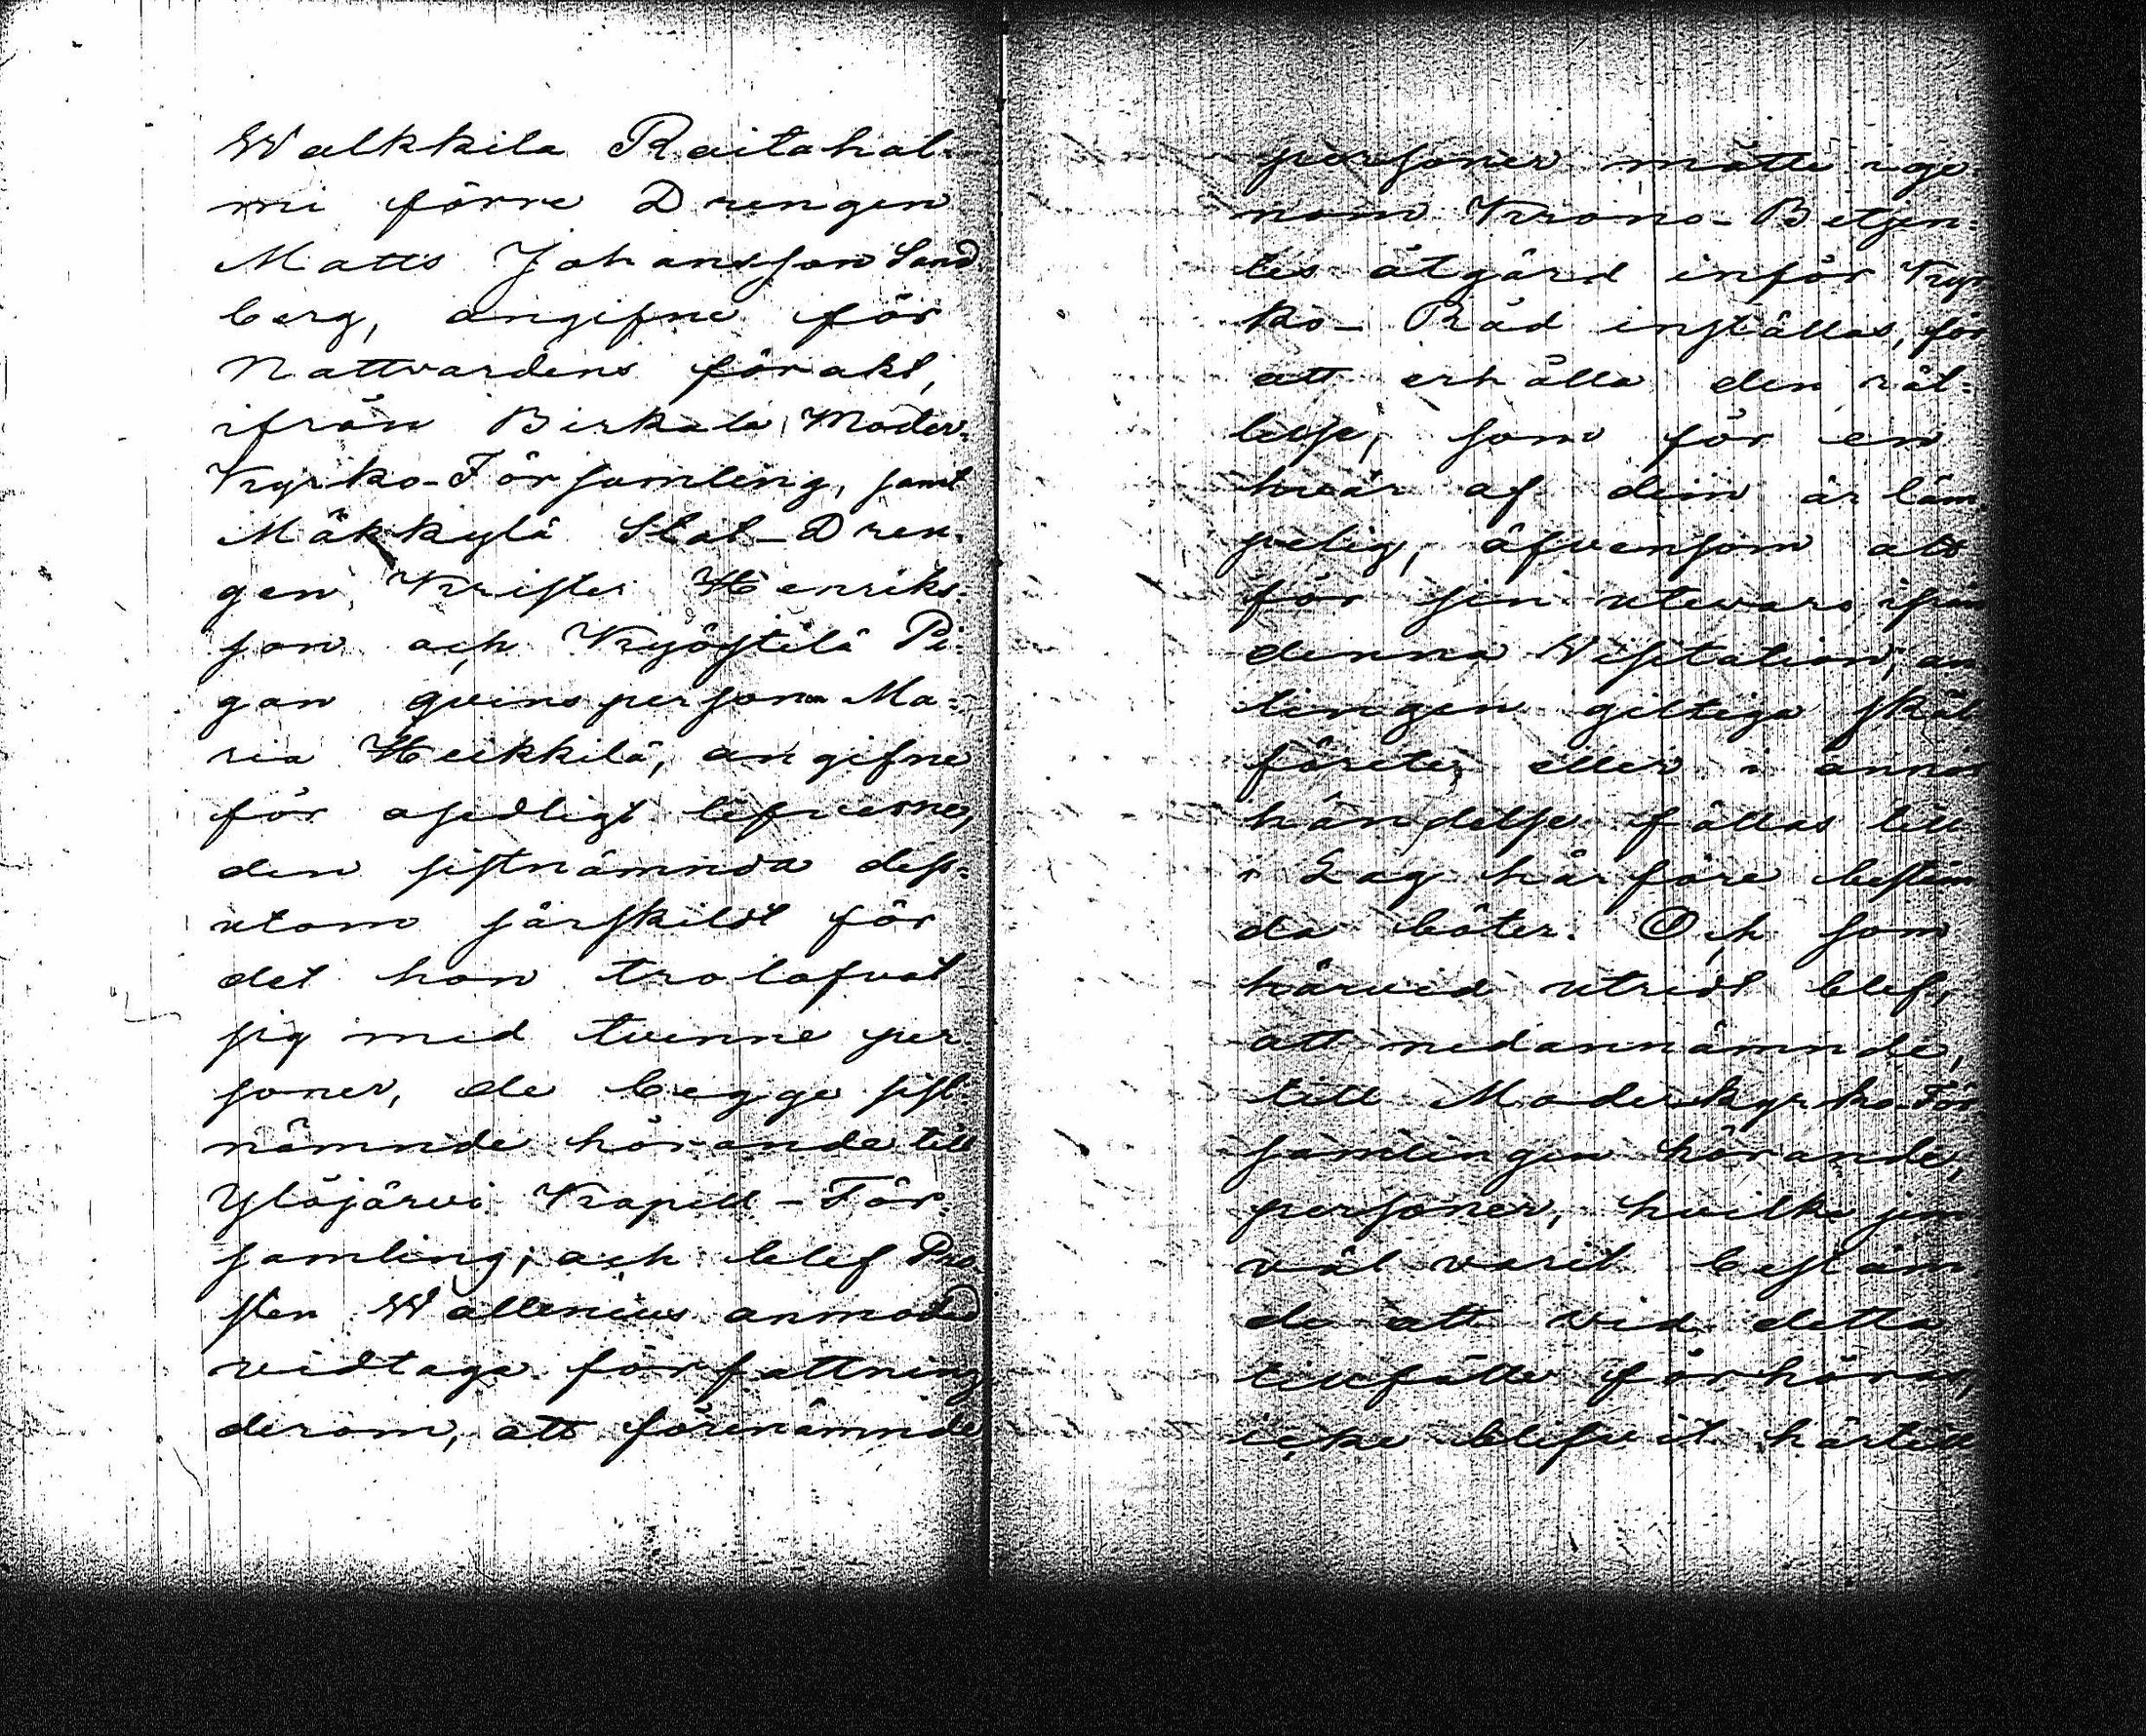 Walkkila Raitahal-
mi förre Drengen
Matts Johansson Sand
berg, angifne för
Nattvardens förakt,
ifrån Birkala Moder-
Kyrko-Församling, samt
Mäkkylä Stat-Dren-
gen Krister Henriks-
son och Kyöstilä Pi-
gan qvinsperson Ma-
ria Heikkilä, angifne
för osedligt lefverne,
den sistnämnda dess-
utom särskildt för
det hon trolofvat
sig med tvenne per
soner, de begge sist-
nämnde hörande till
Ylöjärvi Kapell-För-
samling; och blef Pro
sten Wallenius anmodad
vidtaga författning
derom, att förenämnde
personer måtte ige-
nom Krono-Betjen-
tes åtgärd inför Kyr
ko-Råd inställas, för
att erhålla den rät-
telse, som för en
hvar af dem är läm
pelig, äfvensom att
för sin utevaro ifrån
denna Visitation, an
tingen giltiga skäl
förete, eller i annor
händelse fällas till
i Lag härföre bestäm
da böter. Och som
härvid utredt blef,
att nedannämnde,
till Moderkyrko-För
samlingen hörande,
personer, hvilka jem
väl varit bestäm
de att vid detta
tillfälle förhöras,
icke blifvit härtill